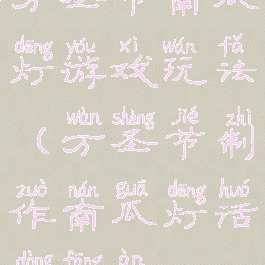 dēng yóu xì wán fǎ
灯游戏玩法
wàn shèng jié zhì
（万圣节制
zuò nán guā dēng huó
作南瓜灯活
dòng fāng àn